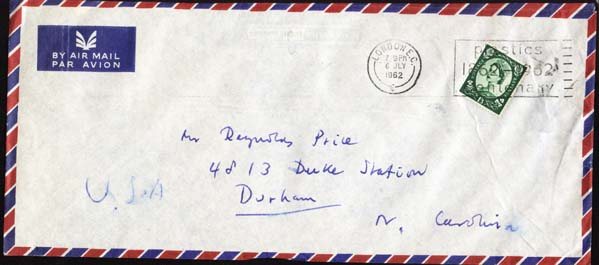 BY AIR MAIL
PAR AVION
LONDON E.C.
6 JLY
1962
plastics
1862-1962
centenary
Mr Reynolds Price
4813 Duke Station
Durham
N. Carolina
U.S.A